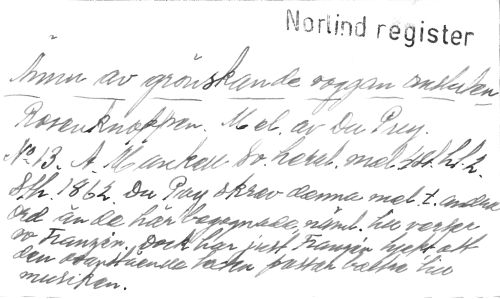 Norlind register
Ännu av grönskande voggan omsluten
Rosenknoppen. Mel. av Du Puy.
No 13. A.
Sth. 1862. Du Puy skrev denna mel. t. andra
ord än de här begagnade, näml. till verser
av Franzén. Dock har just Franzén
den ovanstående texten passar bättre till
musiken.